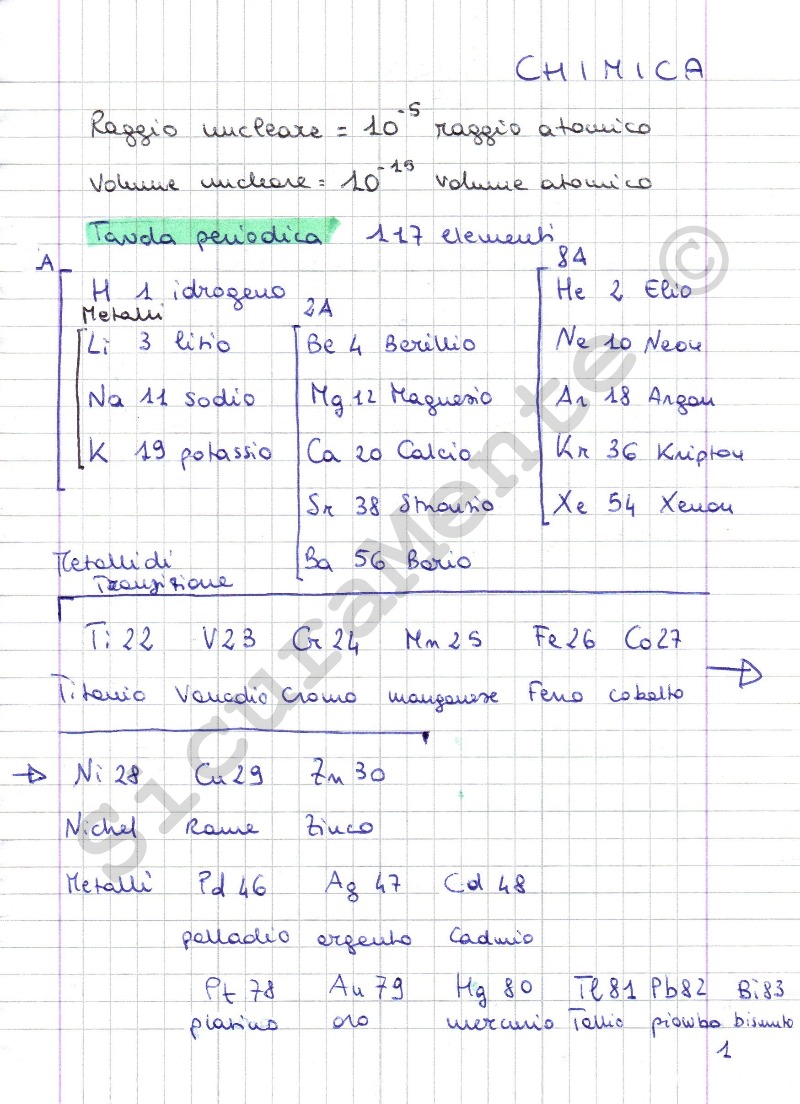 CHIMICA
Raggio nucleare = 10^-5 raggio atomico
Volume nucleare = 10^-15 volume atomico
Tavola periodica 117 elementi
A 8A
H 1 idrogeno He 2 Elio
Metalli 2A
Li 3 litio Be 4 Berillio Ne 10 Neon
Na 11 sodio Mg 12 Magnesio Ar 18 Argon
K 19 potassio Ca 20 Calcio Kr 36 Kripton
Sr 38 Stronzio Xe 54 Xenon
Metalli di Ba 56 Bario
Transizione
Ti 22 V 23 Cr 24 Mn 25 Fe 26 Co 27
Titanio Vanadio Cromo manganese Ferro cobalto
Ni 28 Cu 29 Zn 30
Nichel Rame Zinco
Metalli Pd 46 Ag 47 Cd 48
palladio argento Cadmio
Pt 78 Au 79 Hg 80 Tl 81 Pb 82 Bi 83
platino oro mercurio Tallio piombo bismuto
1
SicuraMente ©